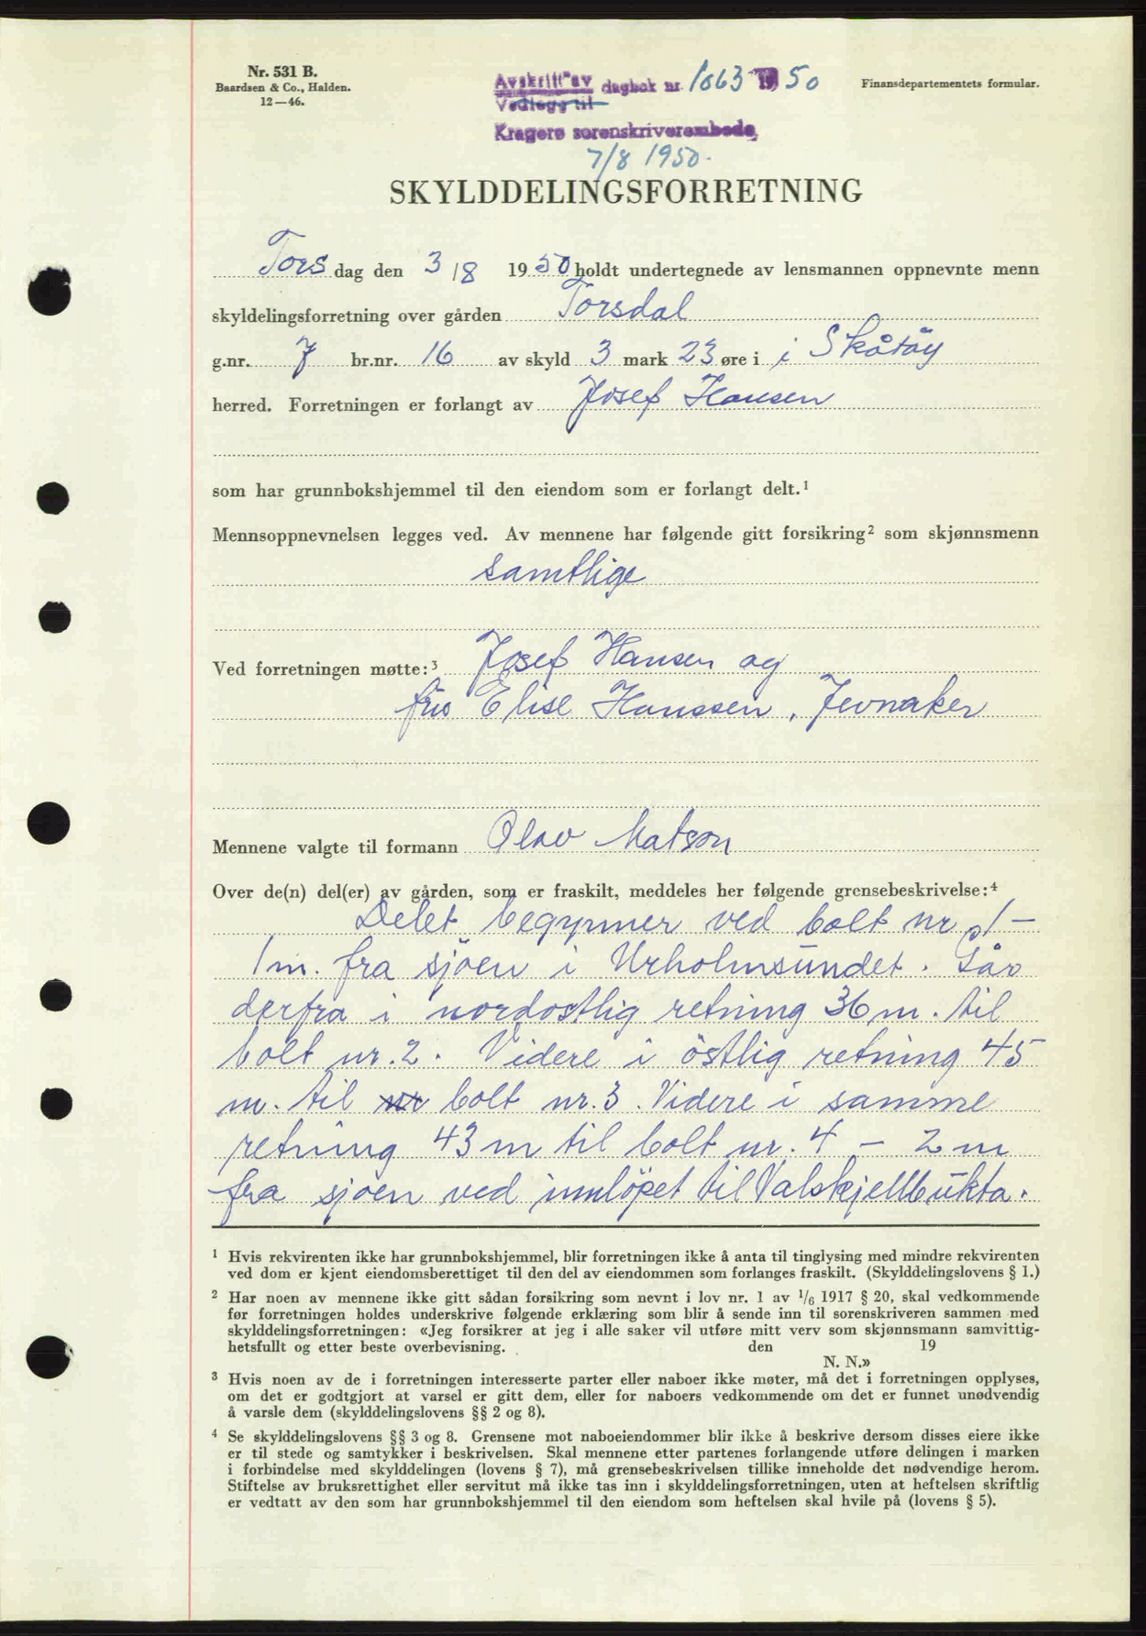 Nr. 531 B.
Baardsen & Co., Halden.
12—46.
Avskrift av dagbok nr. 1063 1950
Vedlegg til
Kragerø sorenskriverembede,
7/8 1950.
Finansdepartementets formular.
SKYLDDELINGSFORRETNING
Tors dag den 3/8 1950 holdt undertegnede av lensmannen oppnevnte menn
skyldelingsforretning over gården Torsdal
g.nr. 7 br.nr. 16 av skyld 3 mark 23 øre i i Skåtøy
herred. Forretningen er forlangt av Josef Hansen
som har grunnbokshjemmel til den eiendom som er forlangt delt.1
Mennsoppnevnelsen legges ved. Av mennene har følgende gitt forsikring2 som skjønnsmenn
samtlige
Ved forretningen møtte:3 Josef Hansen og
fru Elise Hanssen, Jevnaker
Mennene valgte til formann Olav Matson
Over de(n) del(er) av gården, som er fraskilt, meddeles her følgende grensebeskrivelse:4
Delet begynner ved bolt nr. 1 —
1 m. fra sjøen i Urholmsundet. Går
derfra i nordostlig retning 36 m. til
bolt nr. 2. Videre i östlig retning 45
m. til nr bolt nr. 3. Videre i samme
retning 43 m til bolt nr. 4 — 2 m
fra sjøen ved innlöpet til Valskjellbukta.
1 Hvis rekvirenten ikke har grunnbokshjemmel, blir forretningen ikke å anta til tinglysing med mindre rekvirenten
ved dom er kjent eiendomsberettiget til den del av eiendommen som forlanges fraskilt. (Skylddelingslovens § 1.)
2 Har noen av mennene ikke gitt sådan forsikring som nevnt i lov nr. 1 av 1/6 1917 § 20, skal vedkommende
før forretningen holdes underskrive følgende erklæring som blir å sende inn til sorenskriveren sammen med
skylddelingsforretningen: «Jeg forsikrer at jeg i alle saker vil utføre mitt verv som skjønnsmann samvittig-
hetsfullt og etter beste overbevisning. den 19
N. N.»
3 Hvis noen av de i forretningen interesserte parter eller naboer ikke møter, må det i forretningen opplyses,
om det er godtgjort at varsel er gitt dem, eller for naboers vedkommende om det er funnet unødvendig
å varsle dem (skylddelingslovens §§ 2 og 8).
4 Se skylddelingslovens §§ 3 og 8. Grensene mot naboeiendommer blir ikke å beskrive dersom disses eiere ikke
er til stede og samtykker i beskrivelsen. Skal mennene etter partenes forlangende utføre delingen i marken
i forbindelse med skylddelingen (lovens § 7), må grensebeskrivelsen tillike inneholde det nødvendige herom.
Stiftelse av bruksrettighet eller servitut må ikke tas inn i skylddelingsforretningen, uten at heftelsen skriftlig
er vedtatt av den som har grunnbokshjemmel til den eiendom som heftelsen skal hvile på (lovens § 5).